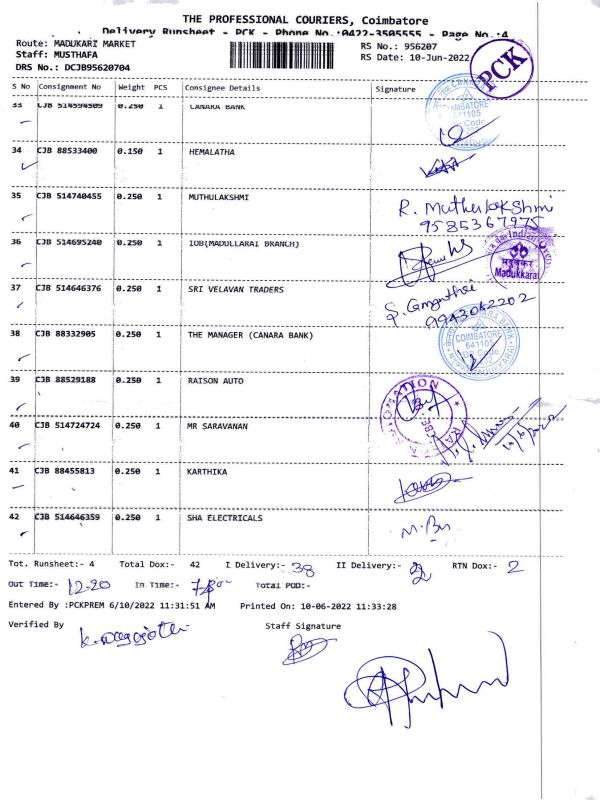 THE PROFESSIONAL COURIERS, Coimbatore
Delivery Runsheet - PCK - Phone No.:0422-3505555 - Page No.:4
Route: MADUKARI MARKET
RS No.: 956207
Staff: MUSTHAFA
RS Date: 10-Jun-2022
DRS No.: DCJB95620704
PCK
S No Consignment No Weight PCS Consignee Details Signature
33 CJB 514594509 0.250 1 CANARA BANK
COIMBATORE
641105
34 CJB 88533400 0.150 1 HEMALATHA
35 CJB 514740455 0.250 1 MUTHULAKSHMI R. Muthulakshmi
9585367975
36 CJB 514695240 0.250 1 IOB(MADULLARAI BRANCH)
Madukkarai
37 CJB 514646376 0.250 1 SRI VELAVAN TRADERS
9943042202
38 CJB 88332905 0.250 1 THE MANAGER (CANARA BANK)
CANARA BANK
COIMBATORE
641105
39 CJB 88529188 0.250 1 RAISON AUTO
40 CJB 514724724 0.250 1 MR SARAVANAN
41 CJB 88455813 0.250 1 KARTHIKA
42 CJB 514646359 0.250 1 SHA ELECTRICALS
Tot. Runsheet:- 4 Total Dox:- 42 I Delivery:- 38 II Delivery:- 2 RTN Dox:- 2
Out Time:- 12-20 In Time:- Total POD:-
Entered By :PCKPREM 6/10/2022 11:31:51 AM Printed On: 10-06-2022 11:33:28
Verified By Staff Signature